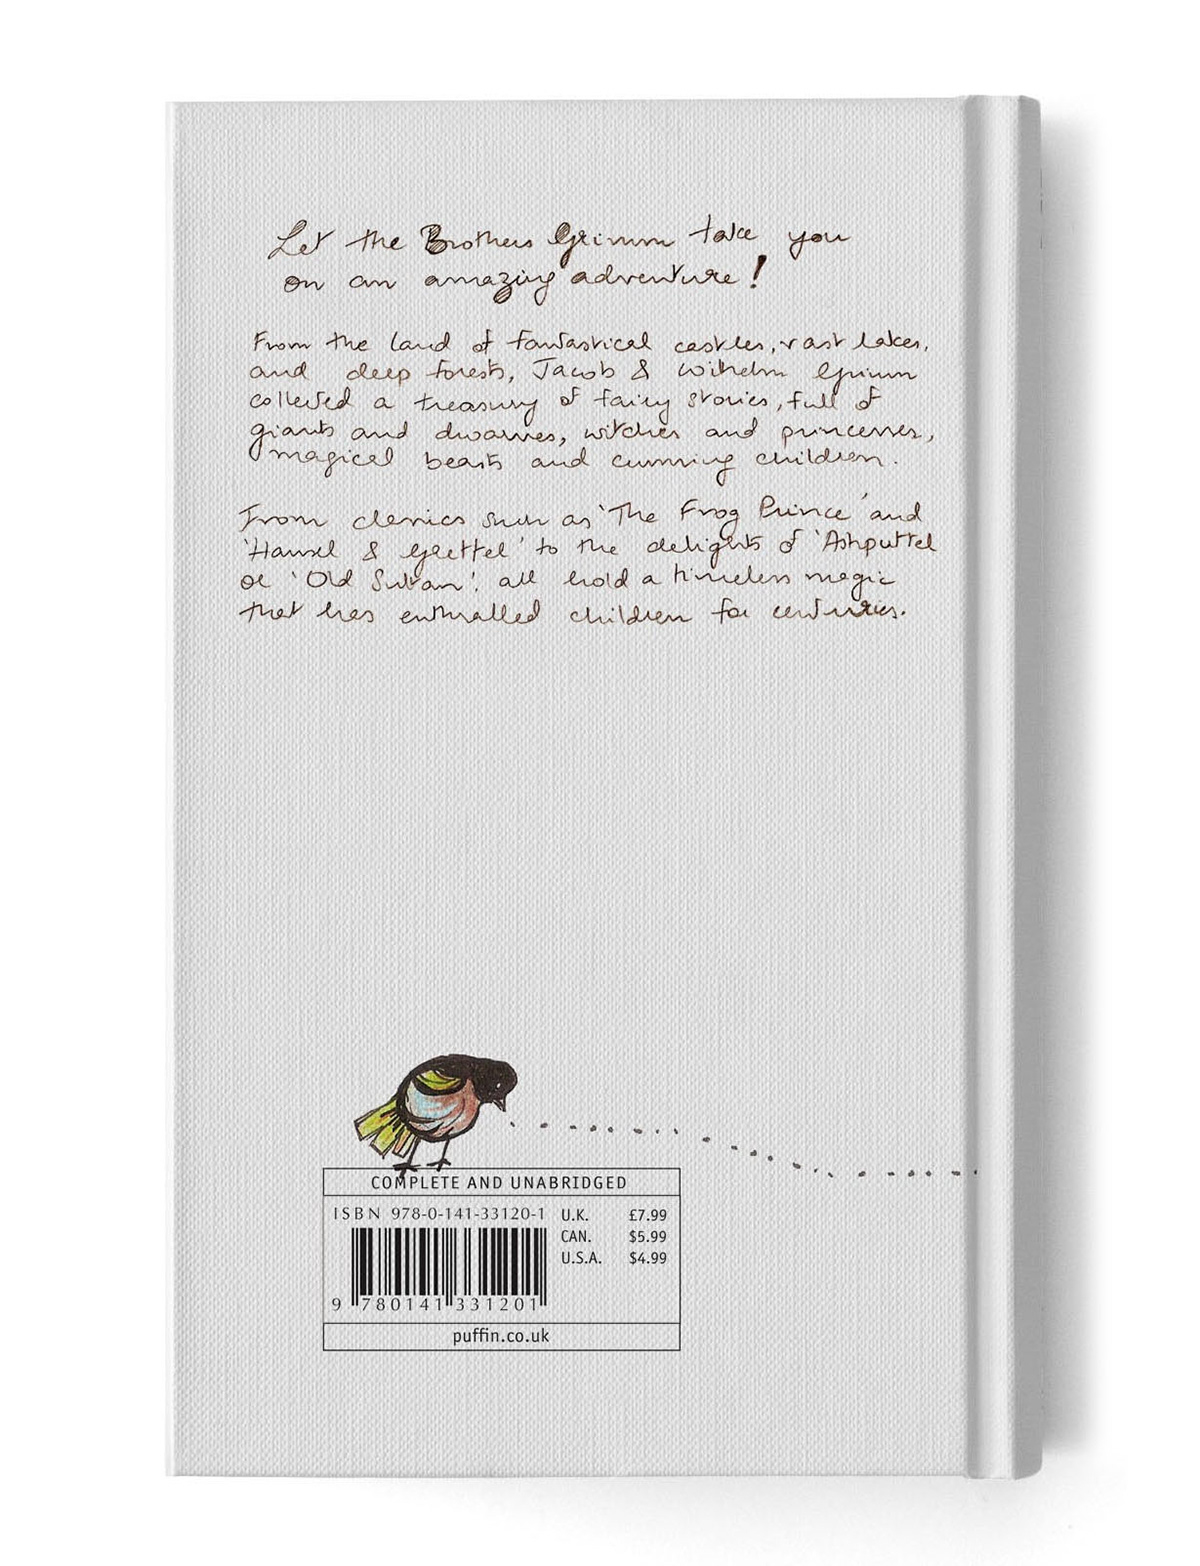 Let the Brothers Grimm take you
on an amazing adventure!
From the land of fantastical castles, vast lakes,
and deep forests, Jacob & Wilhelm Grimm
collected a treasury of fairy stories, full of
giants and dwarves, witches and princesses,
magical beasts and cunning children.
From classics such as 'The Frog Prince' and
'Hansel & Grettel' to the delights of 'Ashputtel
or 'Old Sultan', all hold a timeless magic
that has enthralled children for centuries.
COMPLETE AND UNABRIDGED
ISBN 978-0-141-33120-1
U.K. £7.99
CAN. $5.99
U.S.A. $4.99
9 780141 331201
puffin.co.uk